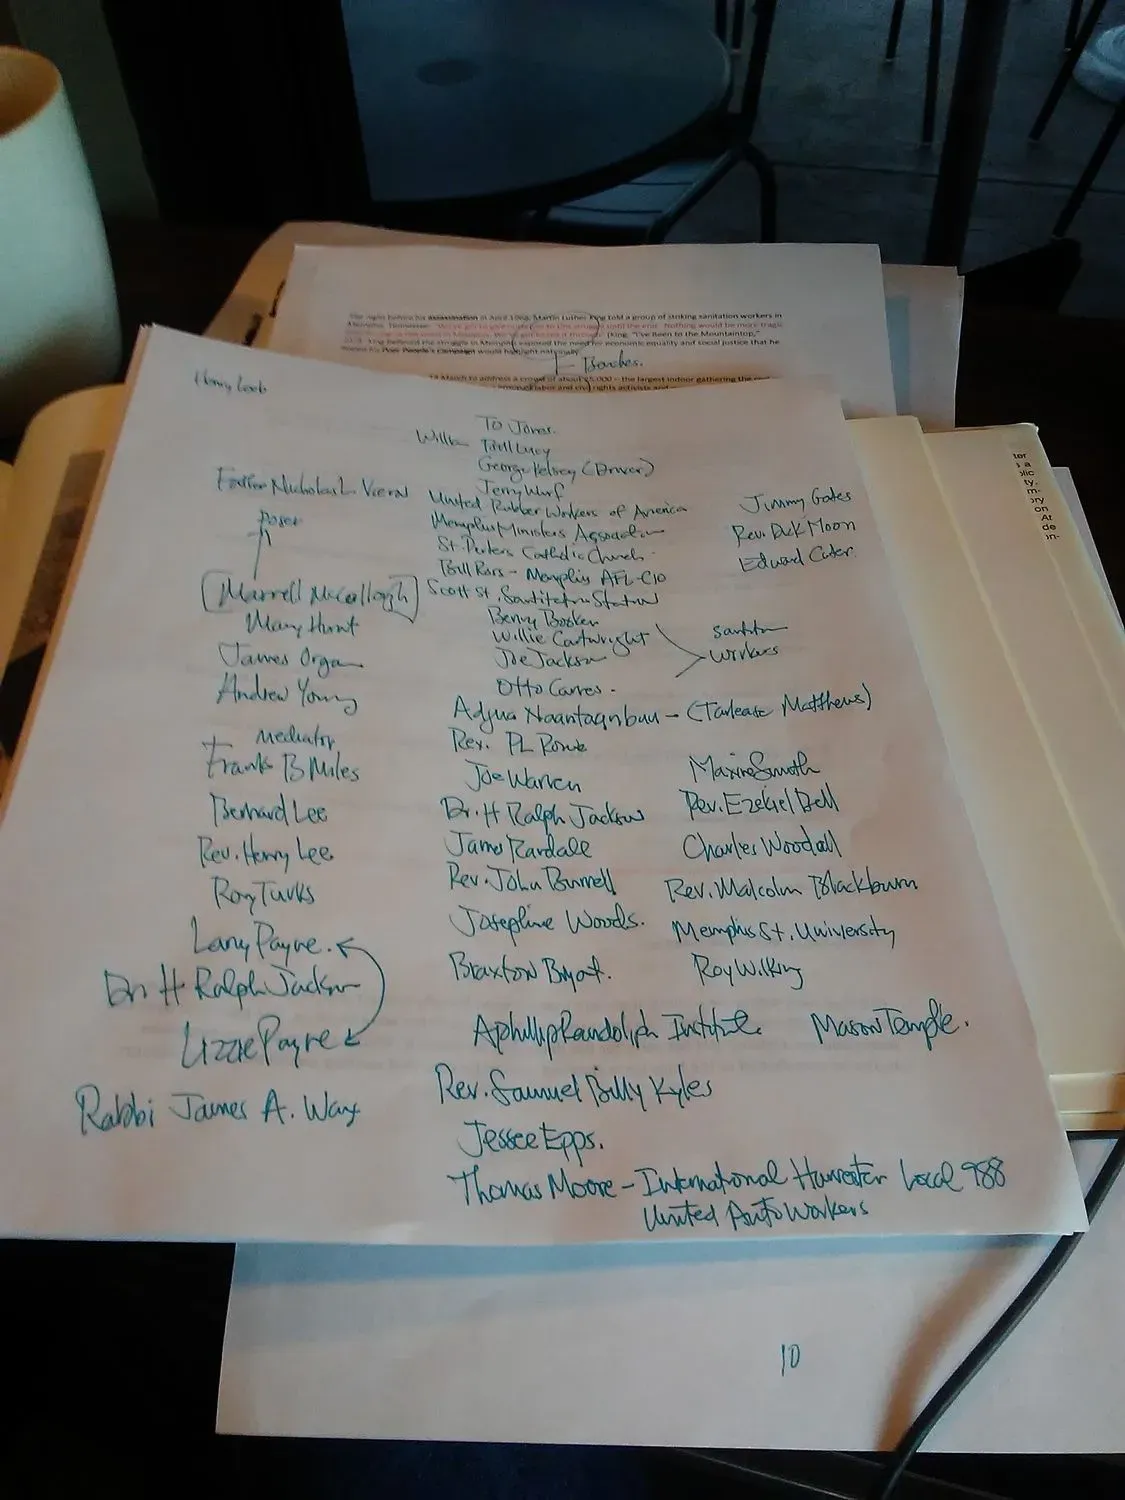 The night before his assassination in April 1968, Martin Luther King told a group of striking sanitation workers in
Memphis, Tennessee: "We've got to give ourselves to this struggle until the end. Nothing would be more tragic
(King, "I've Been to the Mountaintop,"
King believed the struggle in Memphis exposed the need for economic equality and social justice that he
Poor People's Campaign would highlight nationally.
Beaches.
March to address a crowd of about 25,000 – the largest indoor gathering the
of labor and civil rights activists and
ter
s a
olic
ty.
m-
ory
on
At
de
on-
Henry Loeb
TO Jones.
William Bill Lucy
George Kelsey (Driver)
Jerry Wurf
Father Nicholas L. Vieron
United Rubber Workers of America
Jimmy Gates
poser
Memphis Ministers Association
Rev. Dick Moon
St. Peters Catholic Church
Edward Carter
Bill Ross - Memphis AFL-CIO
Marrell McCollough
Scott St. Sanitation Station
Mary Hunt
Benny Booker
Willie Cartwright
sanitation
workers
James Organ
Joe Jackson
Andrew Young
Otto Carnes.
Adjua Naantaanbuu - (Tarlease Matthews)
mediator
Rev. PL Rowe
Frank B Miles
Joe Warren
Maxine Smith
Bernard Lee
Dr. H Ralph Jackson
Rev. Ezekiel Bell
Rev. Henry Lee
James Randale
Charles Woodall
Roy Turks
Rev. John Burrell
Rev. Malcolm Blackburn
Larry Payne.
Josephine Woods.
Memphis St. University
Dr. H Ralph Jackson
Braxton Bryant.
Roy Wilkins
Lizzie Payne
A Phillip Randolph Institute.
Mason Temple.
Rabbi James A. Wax
Rev. Samuel Billy Kyles
Jessee Epps.
Thomas Moore - International Harvester Local 988
United Auto Workers
10